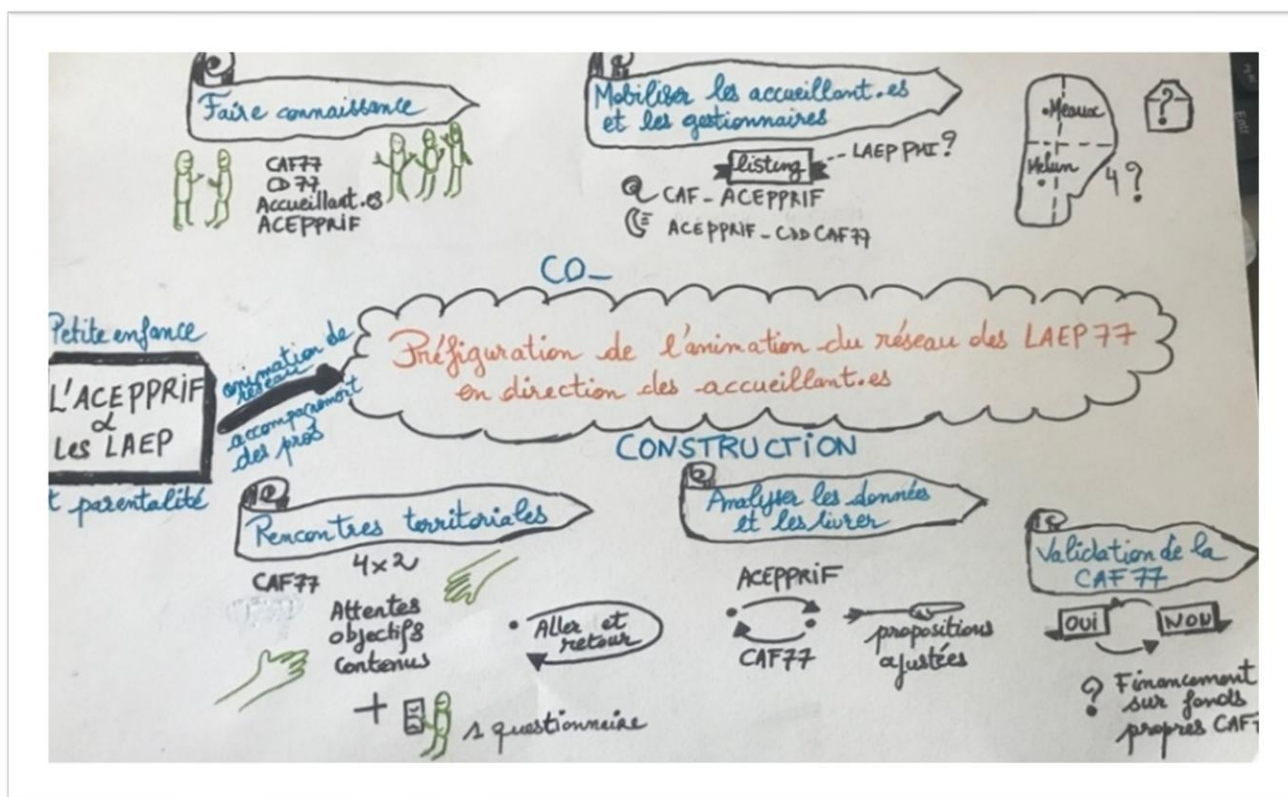 Faire connaissance
CAF77
CD77
Accueillant.es
ACEPPRIF
Mobiliser les accueillant.es
et les gestionnaires
listing --- LAEP PMI ?
@ CAF - ACEPPRIF
ACEPPRIF - CDD CAF77
Meaux
Melun
4 ?
?
CO_
Petite enfance
L'ACEPPRIF
&
Les LAEP
t parentalité
animation de
réseau
accompagnement
des prof
Préfiguration de l'animation du réseau des LAEP 77
en direction des accueillant.es
CONSTRUCTION
Rencontres territoriales
4x2
CAF77
Attentes
objectifs
contenus
Aller et
retour
+ 1 questionnaire
Analyser les données
et les livrer
ACEPPRIF
CAF77
propositions
ajustées
Validation de la
CAF77
OUI
NON
? Financement
sur fonds
propres CAF